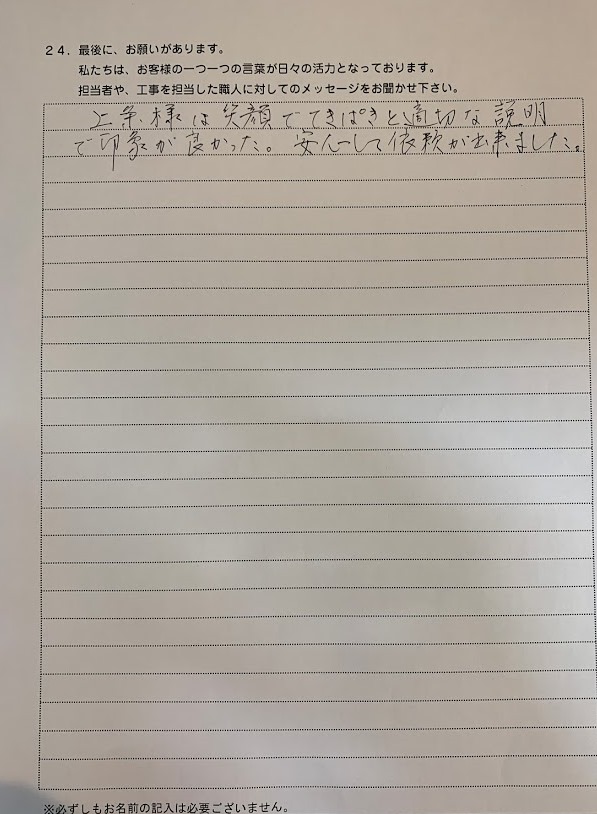 24. 最後に、お願いがあります。
私たちは、お客様の一つ一つの言葉が日々の活力となっております。
担当者や、工事を担当した職人に対してのメッセージをお聞かせ下さい。
上条様は笑顔でてきぱきと適切な説明
で印象が良かった。安心して依頼が出来ました。
※必ずしもお名前の記入は必要ございません。